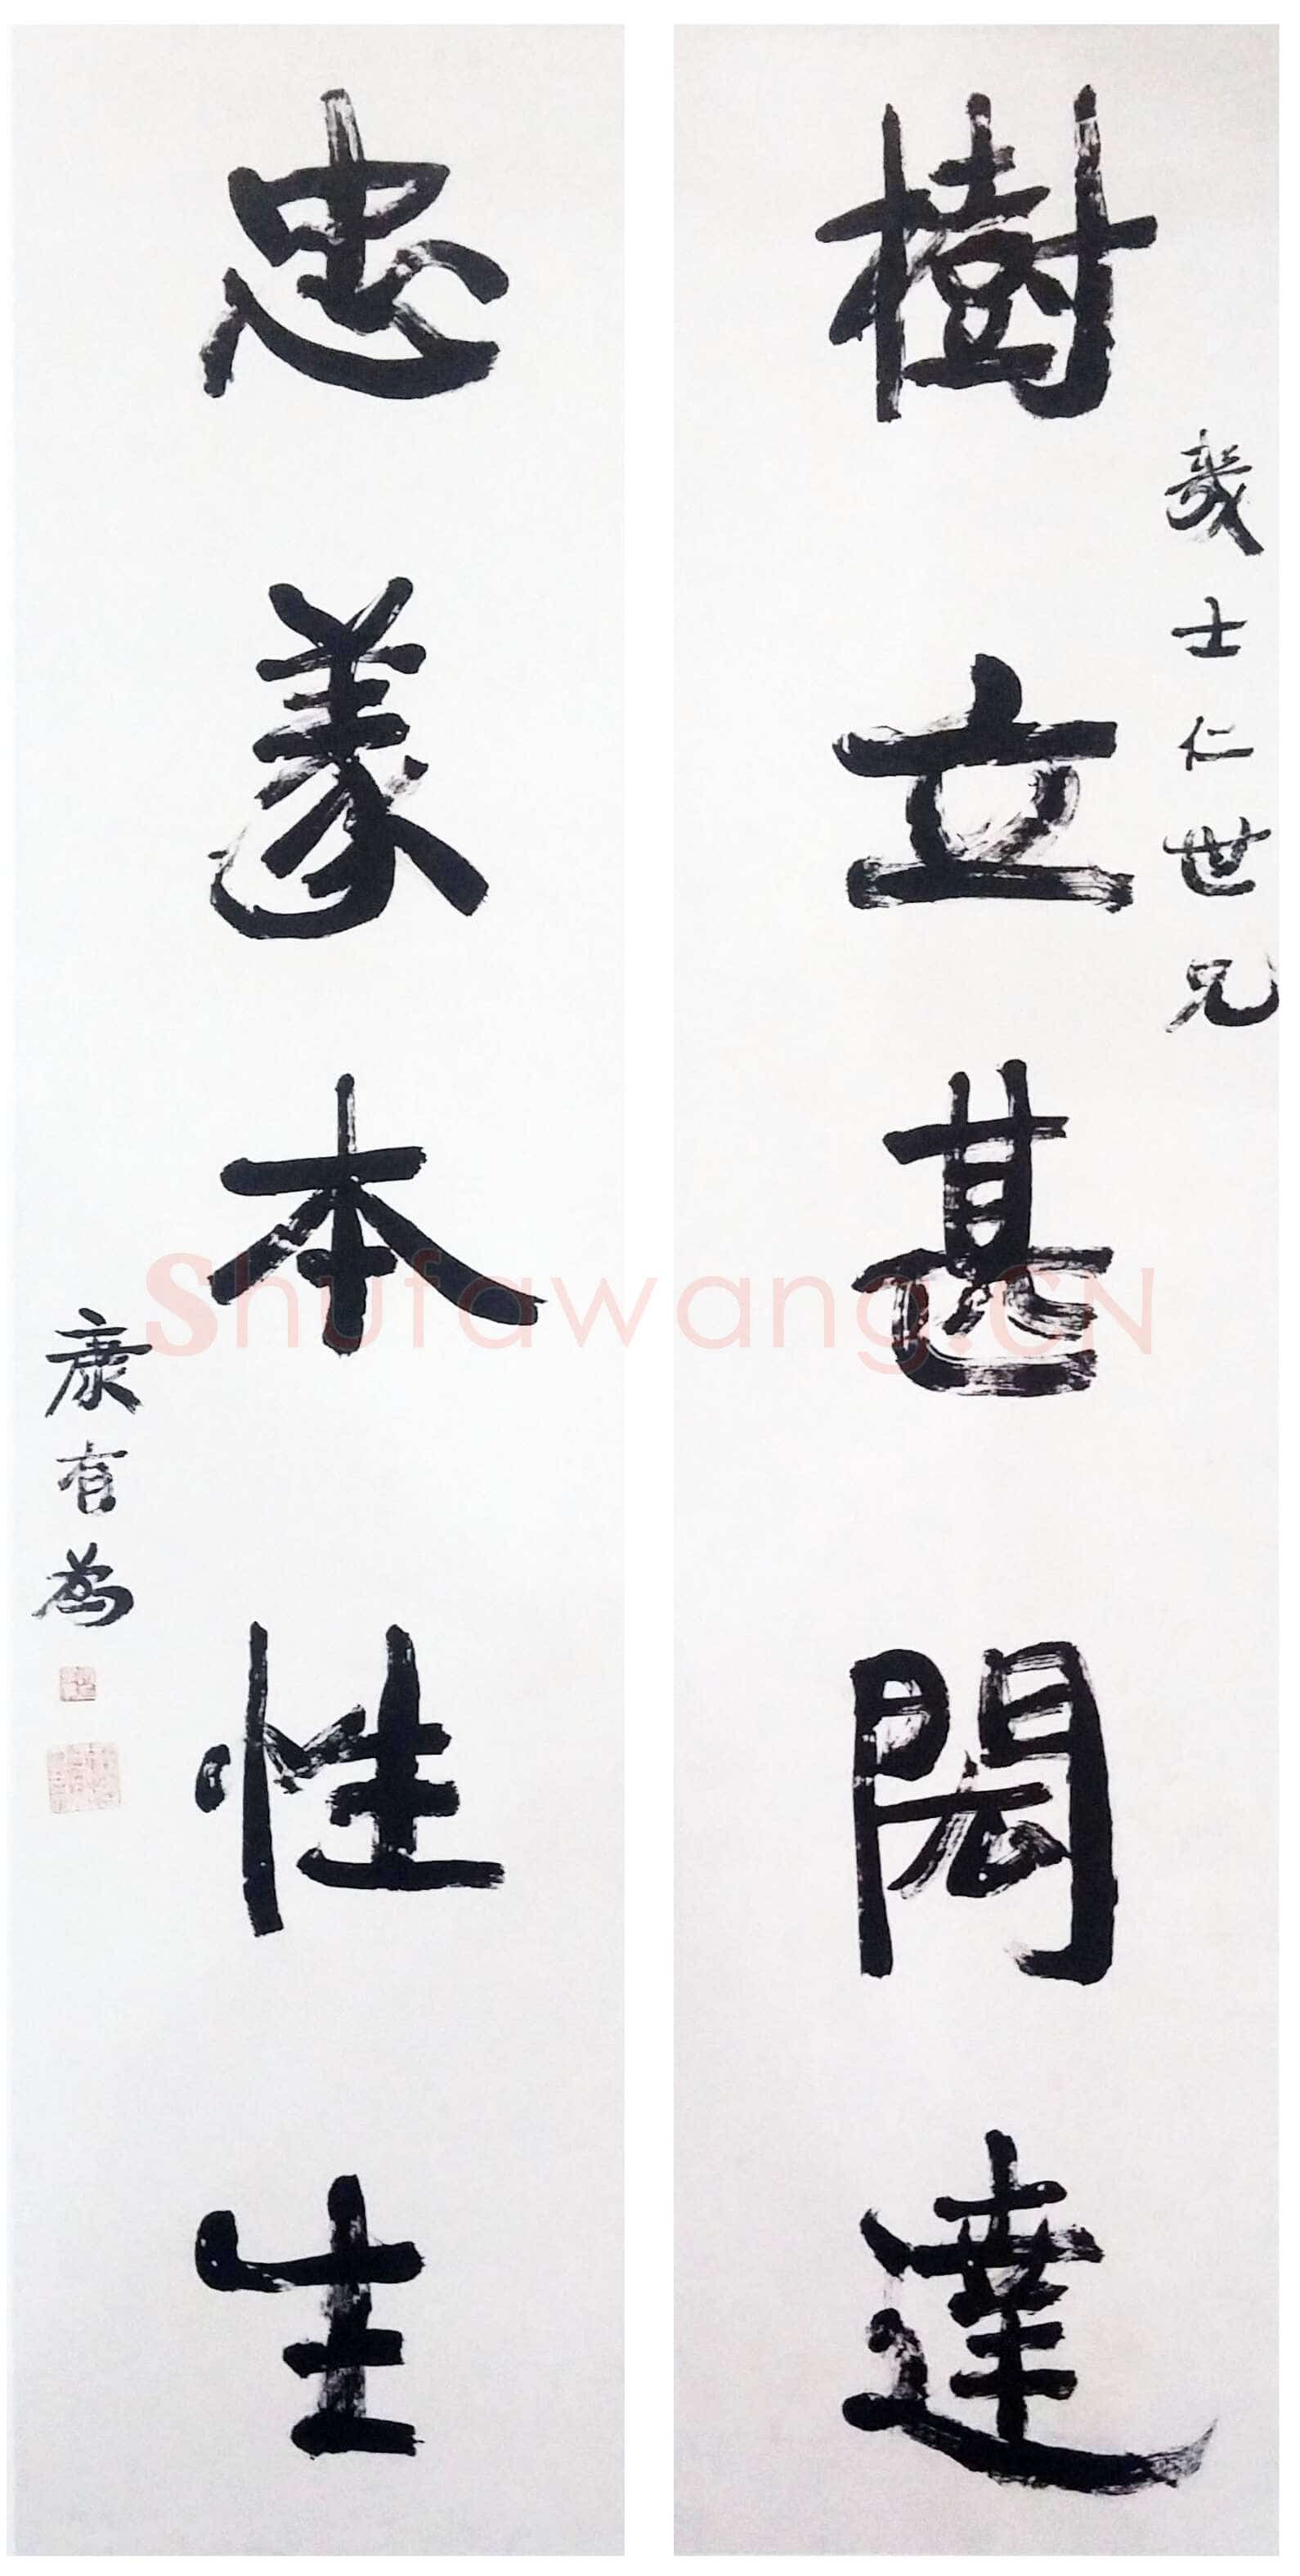 樹立甚閎達
幾士仁世兄
忠義本性生
康有為
Shufawang.CN